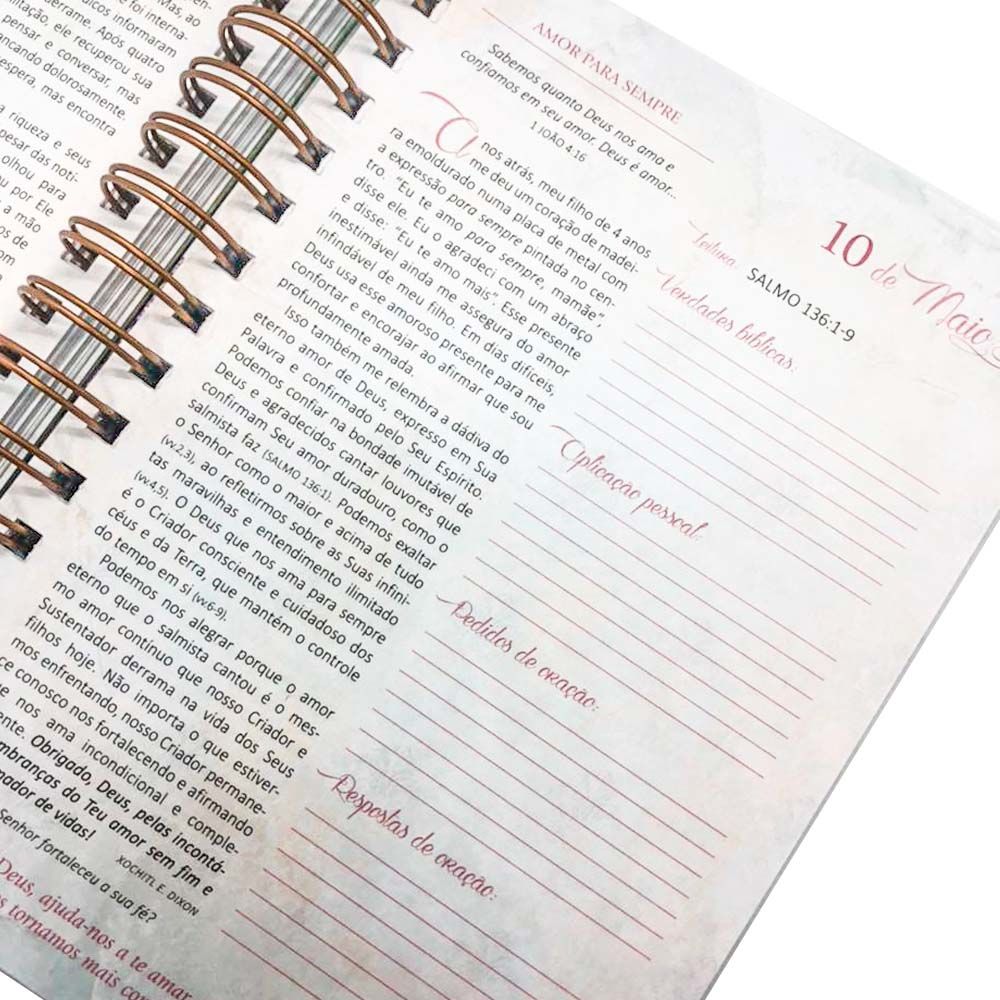 Mas, ao
foi interna-
dicos informaram
derrame. Após quatro
itação, ele recuperou sua
pensar e conversar, mas
ncando dolorosamente.
espera, mas encontra
riqueza e seus
pesar das noti-
olhou para
u por Ele
a mão
os de
AMOR PARA SEMPRE
Sabemos quanto Deus nos ama e
confiamos em seu amor. Deus é amor...
1 JOÃO 4:16
Anos atrás, meu filho de 4 anos
me deu um coração de madei-
ra emoldurado numa placa de metal com
a expressão para sempre pintada no cen-
tro. “Eu te amo para sempre, mamãe”,
disse ele. Eu o agradeci com um abraço
e disse: “Eu te amo mais”. Esse presente
inestimável ainda me assegura do amor
infindável de meu filho. Em dias difíceis,
Deus usa esse amoroso presente para me
confortar e encorajar ao afirmar que sou
profundamente amada.
Isso também me relembra a dádiva do
eterno amor de Deus, expresso em Sua
Palavra e confirmado pelo Seu Espírito.
Podemos confiar na bondade imutável de
Deus e agradecidos cantar louvores que
confirmam Seu amor duradouro, como o
salmista faz (SALMO 136:1). Podemos exaltar
o Senhor como o maior e acima de tudo
(vv.2,3), ao refletirmos sobre as Suas infini-
tas maravilhas e entendimento ilimitado
(vv.4,5). O Deus que nos ama para sempre
é o Criador consciente e cuidadoso dos
céus e da Terra, que mantém o controle
do tempo em si (vv.6-9).
Podemos nos alegrar porque o amor
eterno que o salmista cantou é o mes-
mo amor contínuo que nosso Criador e
Sustentador derrama na vida dos Seus
filhos hoje. Não importa o que estiver-
mos enfrentando, nosso Criador permane-
ce conosco nos fortalecendo e afirmando
e nos ama incondicional e comple-
ente. Obrigado, Deus, pelas incontá-
mbranças do Teu amor sem fim e
mador de vidas!
XOCHITL E. DIXON
Senhor fortaleceu a sua fé?
Deus, ajuda-nos a te amar
os tornamos mais
10 de Maio
Leitura: SALMO 136:1-9
Verdades bíblicas:
Aplicação pessoal:
Pedidos de oração:
Respostas de oração: